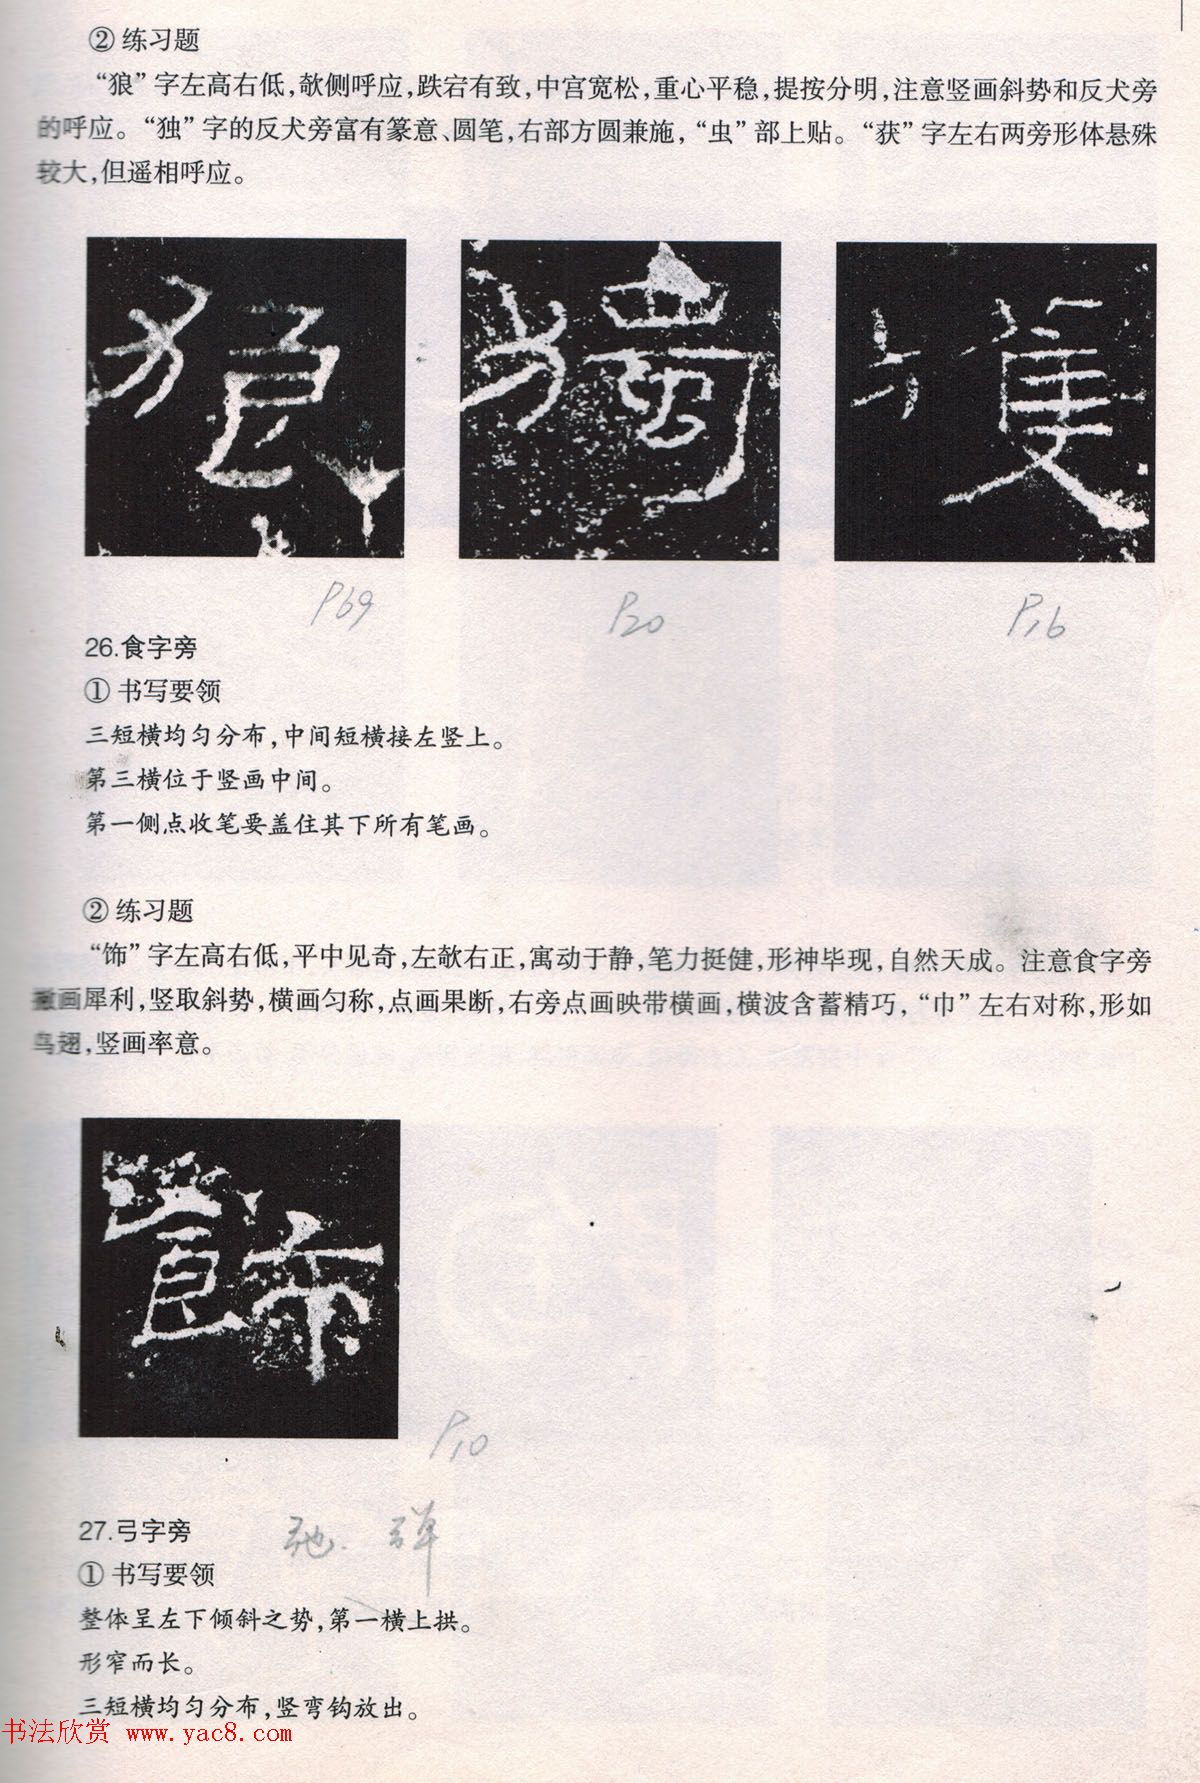 ② 练习题
“狼”字左高右低，欹侧呼应，跌宕有致，中宫宽松，重心平稳，提按分明，注意竖画斜势和反犬旁
的呼应。“独”字的反犬旁富有篆意、圆笔，右部方圆兼施，“虫”部上贴。“获”字左右两旁形体悬殊
较大，但遥相呼应。
狼 獨 獲
P69 P20 P16
26.食字旁
① 书写要领
三短横均匀分布，中间短横接左竖上。
第三横位于竖画中间。
第一侧点收笔要盖住其下所有笔画。
② 练习题
“饰”字左高右低，平中见奇，左欹右正，寓动于静，笔力挺健，形神毕现，自然天成。注意食字旁
撇画犀利，竖取斜势，横画匀称，点画果断，右旁点画映带横画，横波含蓄精巧，“巾”左右对称，形如
鸟翅，竖画率意。
飾
P10
27.弓字旁 弛. 弹
① 书写要领
整体呈左下倾斜之势，第一横上拱。
形窄而长。
三短横均匀分布，竖弯钩放出。
书法欣赏 www.yac8.com